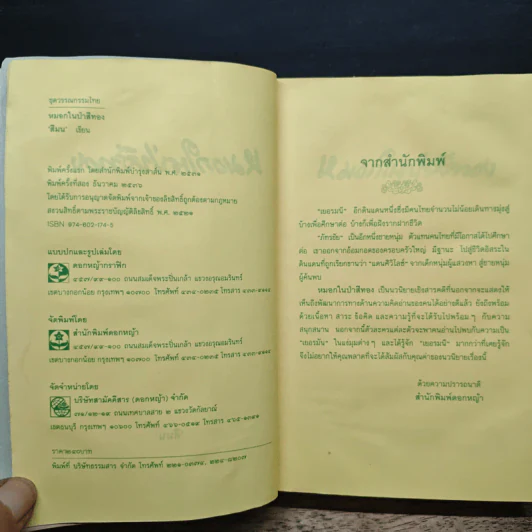 ชุดวรรณกรรมไทย
หมอกในป่าสีทอง
"สีมน" เขียน
พิมพ์ครั้งแรก โดยสำนักพิมพ์บำรุงสาส์น พ.ศ. ๒๕๓๑
พิมพ์ครั้งที่สอง ธันวาคม ๒๕๓๖
โดยได้รับการอนุญาตจัดพิมพ์จากเจ้าของลิขสิทธิ์ถูกต้องตามกฎหมาย
สงวนสิทธิ์ตามพระราชบัญญัติลิขสิทธิ์ พ.ศ. ๒๕๒๑
ISBN 974-602-174-5
แบบปกและรูปเล่มโดย
ดอกหญ้ากราฟิก
๔๕๗/๙๙-๑๐๐ ถนนสมเด็จพระปิ่นเกล้า แขวงอรุณอมรินทร์
เขตบางกอกน้อย กรุงเทพฯ ๑๐๗๐๐ โทรศัพท์
จัดพิมพ์โดย
สำนักพิมพ์ดอกหญ้า
๔๕๗/๙๙-๑๐๐ ถนนสมเด็จพระปิ่นเกล้า แขวงอรุณอมรินทร์
เขตบางกอกน้อย กรุงเทพฯ ๑๐๗๐๐ โทรศัพท์
จัดจำหน่ายโดย
บริษัทสามัคคีสาร (ดอกหญ้า) จำกัด
๗๑/๑๒-๑๙ ถนนเทศบาลสาย ๒ แขวงวัดกัลยาณ์
เขตธนบุรี กรุงเทพฯ ๑๐๖๐๐ โทรศัพท์
พิมพ์ที่ บริษัทธรรมสาร จำกัด โทรศัพท์
จากสำนักพิมพ์
"เยอรมนี" อีกดินแดนหนึ่งซึ่งมีคนไทยจำนวนไม่น้อยเดินทางมุ่งสู่
บ้างเพื่อศึกษาต่อ บ้างก็เพื่อผจญชีวิต
"ภัทรชัย" เป็นอีกหนึ่งชายหนุ่ม ตัวแทนคนไทยที่มีโอกาสได้ไปศึกษา
ต่อ เขาออกจากอ้อมกอดของครอบครัวใหญ่ มีฐานะ ไปสู่ชีวิตอิสระใน
ดินแดนที่ถูกเรียกขานว่า "แดนศิวิไลซ์" จากเด็กหนุ่มผู้แสวงหา สู่ชายหนุ่ม
ผู้ค้นพบ
หมอกในป่าสีทอง เป็นนวนิยายเชิงสารคดีที่นอกจากจะแสดงให้
เห็นถึงพัฒนาการทางด้านความคิดอ่านของคนได้อย่างดีแล้ว ยังถึงพร้อม
ด้วยเนื้อหา สาระ ข้อคิด และความรู้ที่จะได้รับไปพร้อมๆ กับความ
สนุกสนาน นอกจากนี้ตัวละครแต่ละตัวจะพาคนอ่านไปพบกับความเป็น
"เยอรมัน" ในแง่มุมต่างๆ และได้รู้จัก "เยอรมนี" มากกว่าที่เคยรู้จัก
จึงไม่อยากให้คุณพลาดที่จะได้สัมผัสกับคุณค่าของนวนิยายเรื่องนี้
ด้วยความปรารถนาดี
สำนักพิมพ์ดอกหญ้า